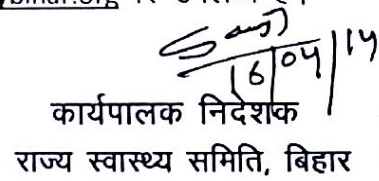 bihar.org
16/04/14
कार्यपालक निदेशक
राज्य स्वास्थ्य समिति, बिहार